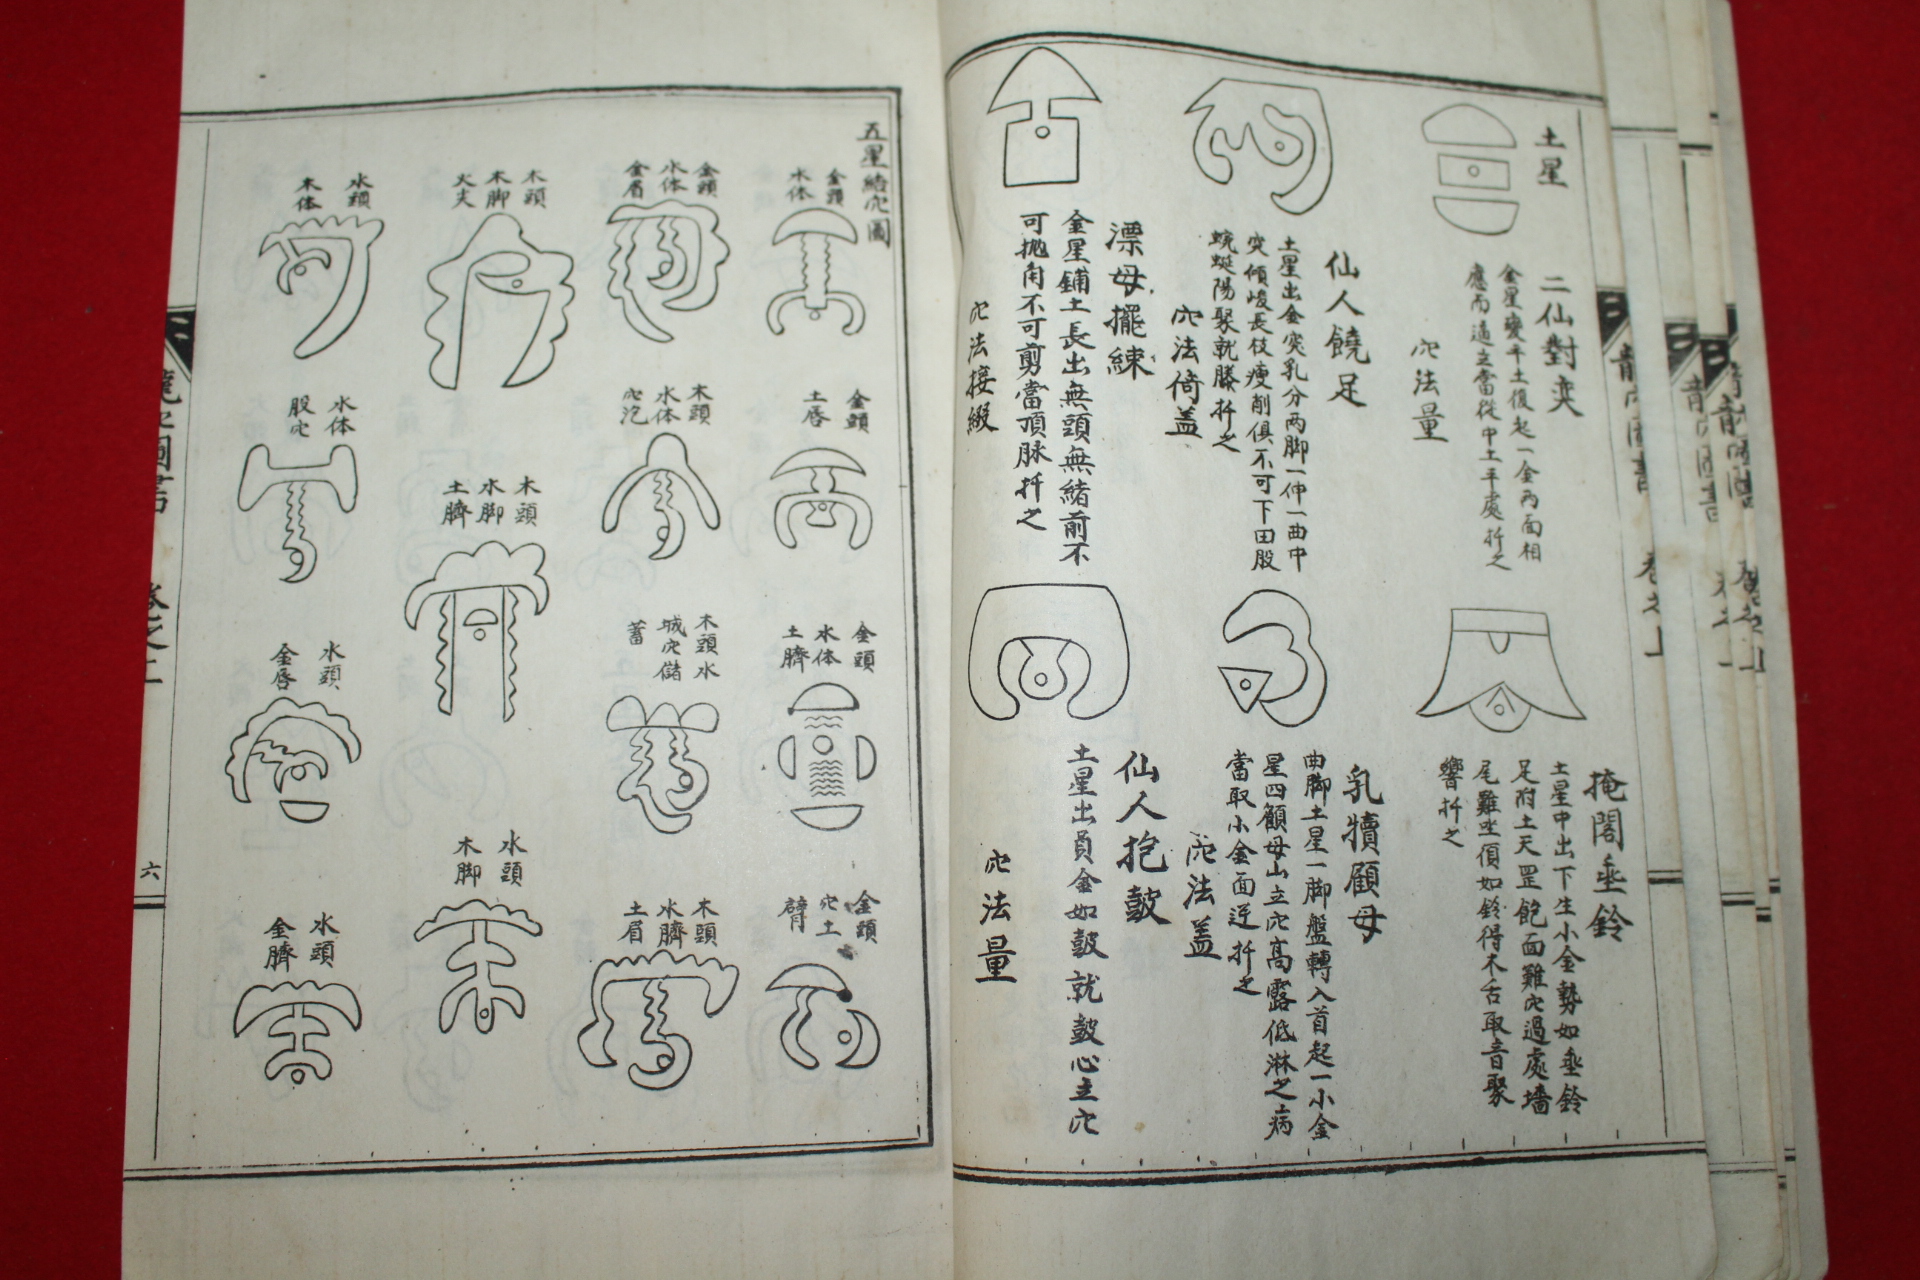 土星
二仙對奕
金星變平土復起一金兩面相
應而遠立當從中土平處扦之
穴法量
仙人饒足
土星出金突乳分兩脚一伸一曲中
突傾峻長枝瘦削俱不可下田股
蜿蜒陽聚就膝扦之
穴法倚蓋
漂母擺練
金星鋪土長出無頭無緒前不
可抛角不可剪當頂脉扦之
穴法接綴
掩閣垂鈴
土星中出下生小金勢如垂鈴
足附土天罡飽面難穴過處墻
尾難坐傎如鈴得木舌取音聚
響扦之
乳犢顧母
曲脚土星一脚盤轉入首起一小金
星四顧母山立穴高露低淋之病
當取小金面逆扦之
穴法蓋
仙人抱皷
土星出員金如皷就皷心立穴
穴法量
五星結穴圖
金頭
水体
金頭
土唇
金頭
水体
土臍
金頭
穴土
臂
金頭
水体
金眉
木頭
水体
穴泡
木頭水
城穴儲
蓄
木頭
水臍
土眉
木頭
木脚
火尖
木頭
水脚
土臍
水頭
木脚
水頭
木体
水体
股穴
水頭
金唇
水頭
金臍
六